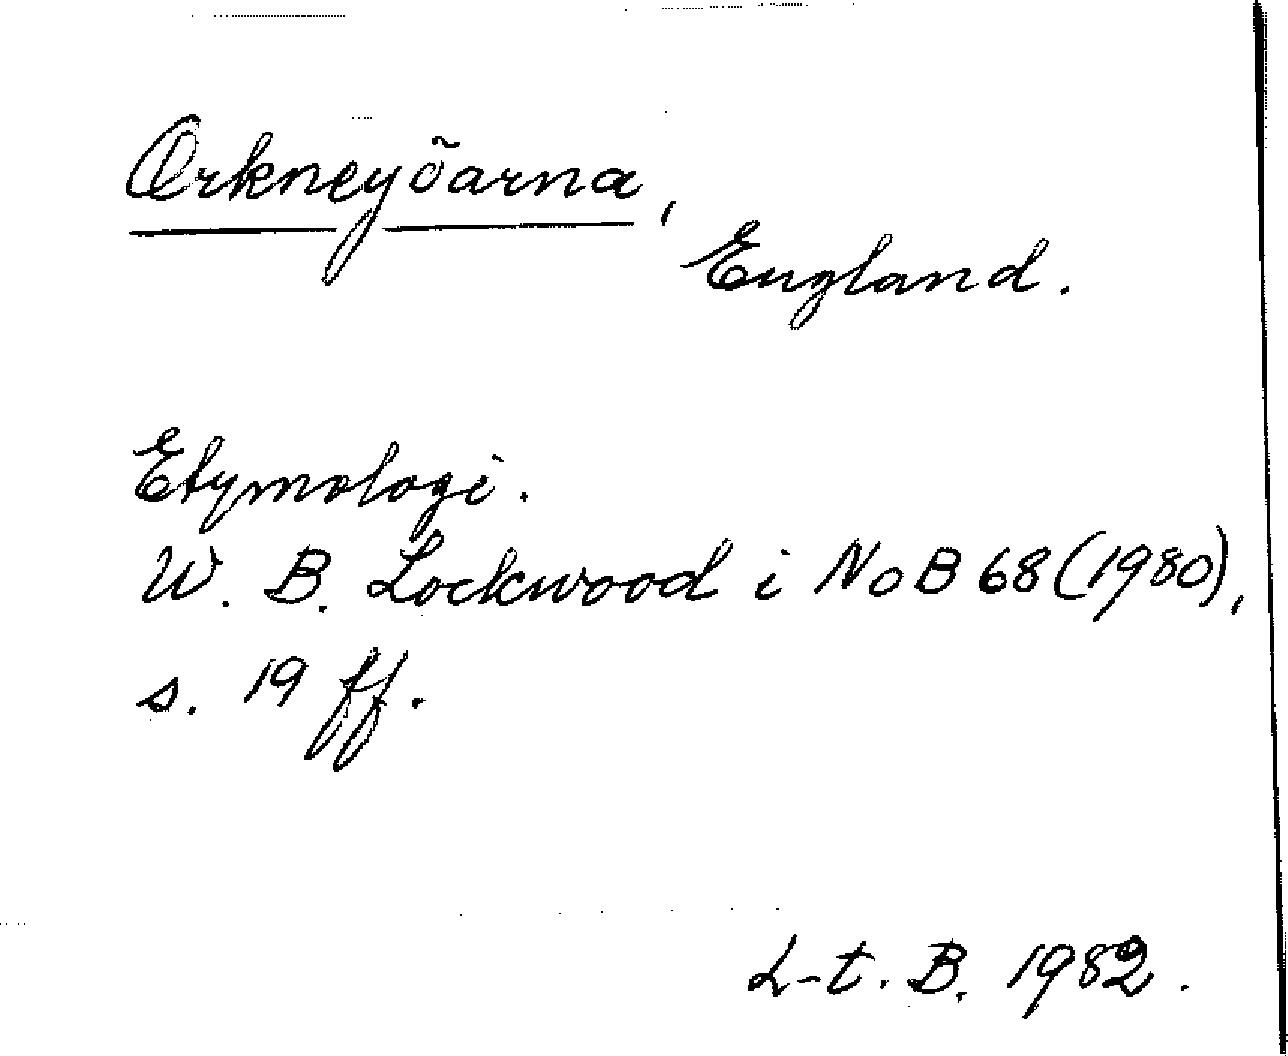 Orkneyöarna,
England.
Etymologi.
W. B. Lockwood i NoB 68 (1980),
s. 19 ff.
L-t. B. 1982.